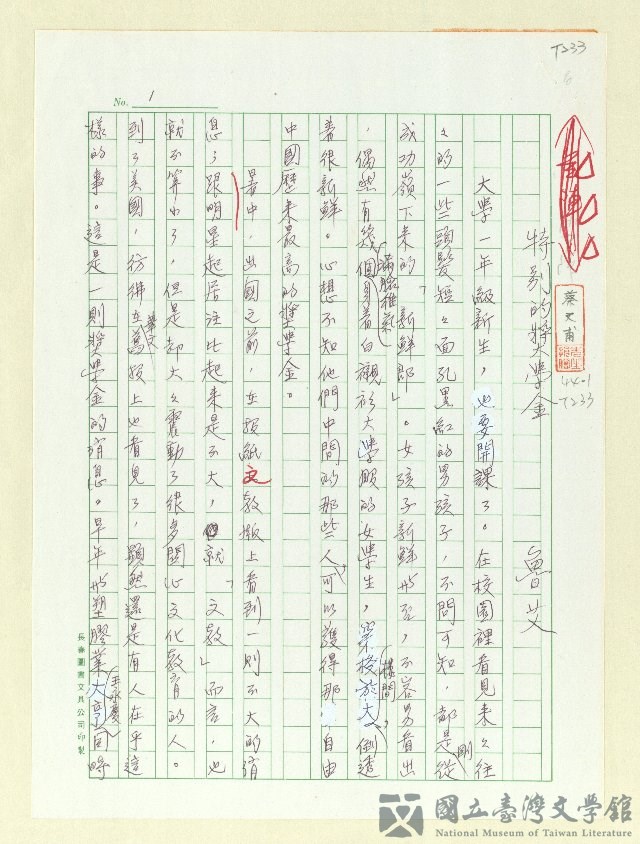 T233
No. 1
特別的獎學金
魯艾
蔡文甫
4401
T233
大學一年級新生，也要開課了。在校園裡看見來來往
往的一些頭髮短短面孔黑紅的男孩子，不問可知，都是剛從
成功嶺下來的「新鮮郎」。女孩子新鮮與否，不容易看出
，偶然有幾個滿臉稚氣穿著白襯衫大學服的女學生，倒透
著很新鮮。心想不知他們中間的那些人，可以獲得那自由
中國歷來最高的獎學金。
暑中，出國之前，在報紙文教版上看到一則不大的消
息，跟明星起居注比起來是不大，就「文教」而言，也
就不算小了，但是卻大大震動了很多關心文化教育的人。
到了美國，彷彿在華文舊報上也看見了，顯然還是有人在乎這
樣的事。這是一則獎學金的消息。早年以塑膠業大亨王永慶同時
長春圖書文具公司印製
國立臺灣文學館
National Museum of Taiwan Literature